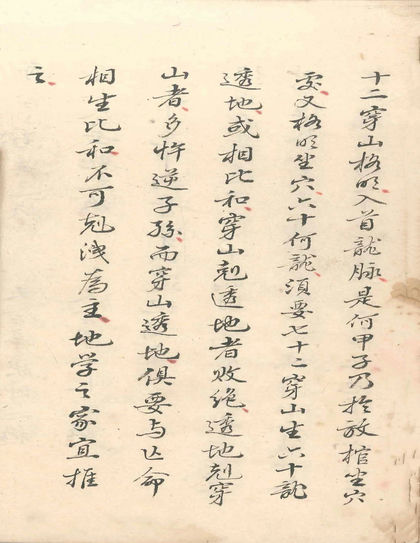 十二穿山格明入首龍脉是何甲子乃於放棺坐穴
處又格明坐穴六十何龍須要七十二穿山生六十龍
透地或相比和穿山剋透地者敗絶透地剋穿
山者多忤逆子孫而穿山透地俱要与亡命
相生比和不可剋洩為主地学之家宜推
之